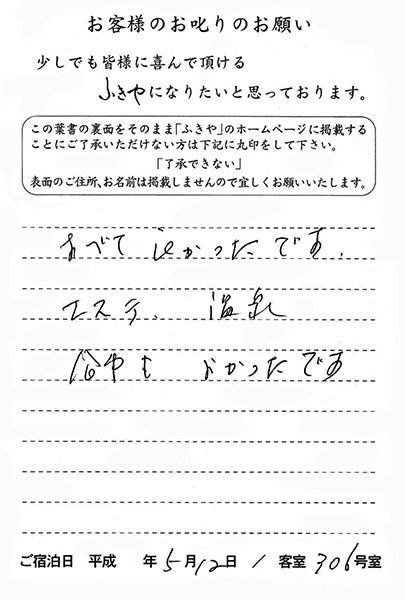 お客様のお叱りのお願い
少しでも皆様に喜んで頂ける
ふきやになりたいと思っております。
この葉書の裏面をそのまま「ふきや」のホームページに掲載する
ことにご了承いただけない方は下記に丸印をして下さい。
「了承できない」
表面のご住所、お名前は掲載しませんので宜しくお願いいたします。
すべて よかったです。
エステ、 温泉
浴中も よかったです
ご宿泊日 平成 年 5月12日 / 客室 306号室